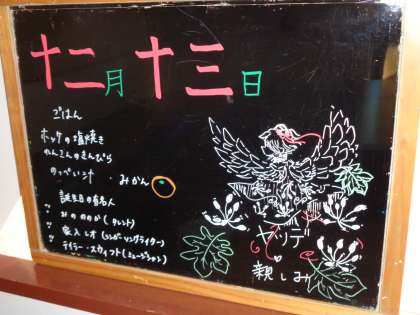 十二月十三日
ごはん
ホッケの塩焼き
れんこんのきんぴら
のっぺい汁 ・みかん
誕生日の有名人
〃 みのもんが(タレント)
〃 家入レオ(シンガーソングライター)
〃 テイラー・スウィフト(ミュージシャン)
ヤツデ
親しみ